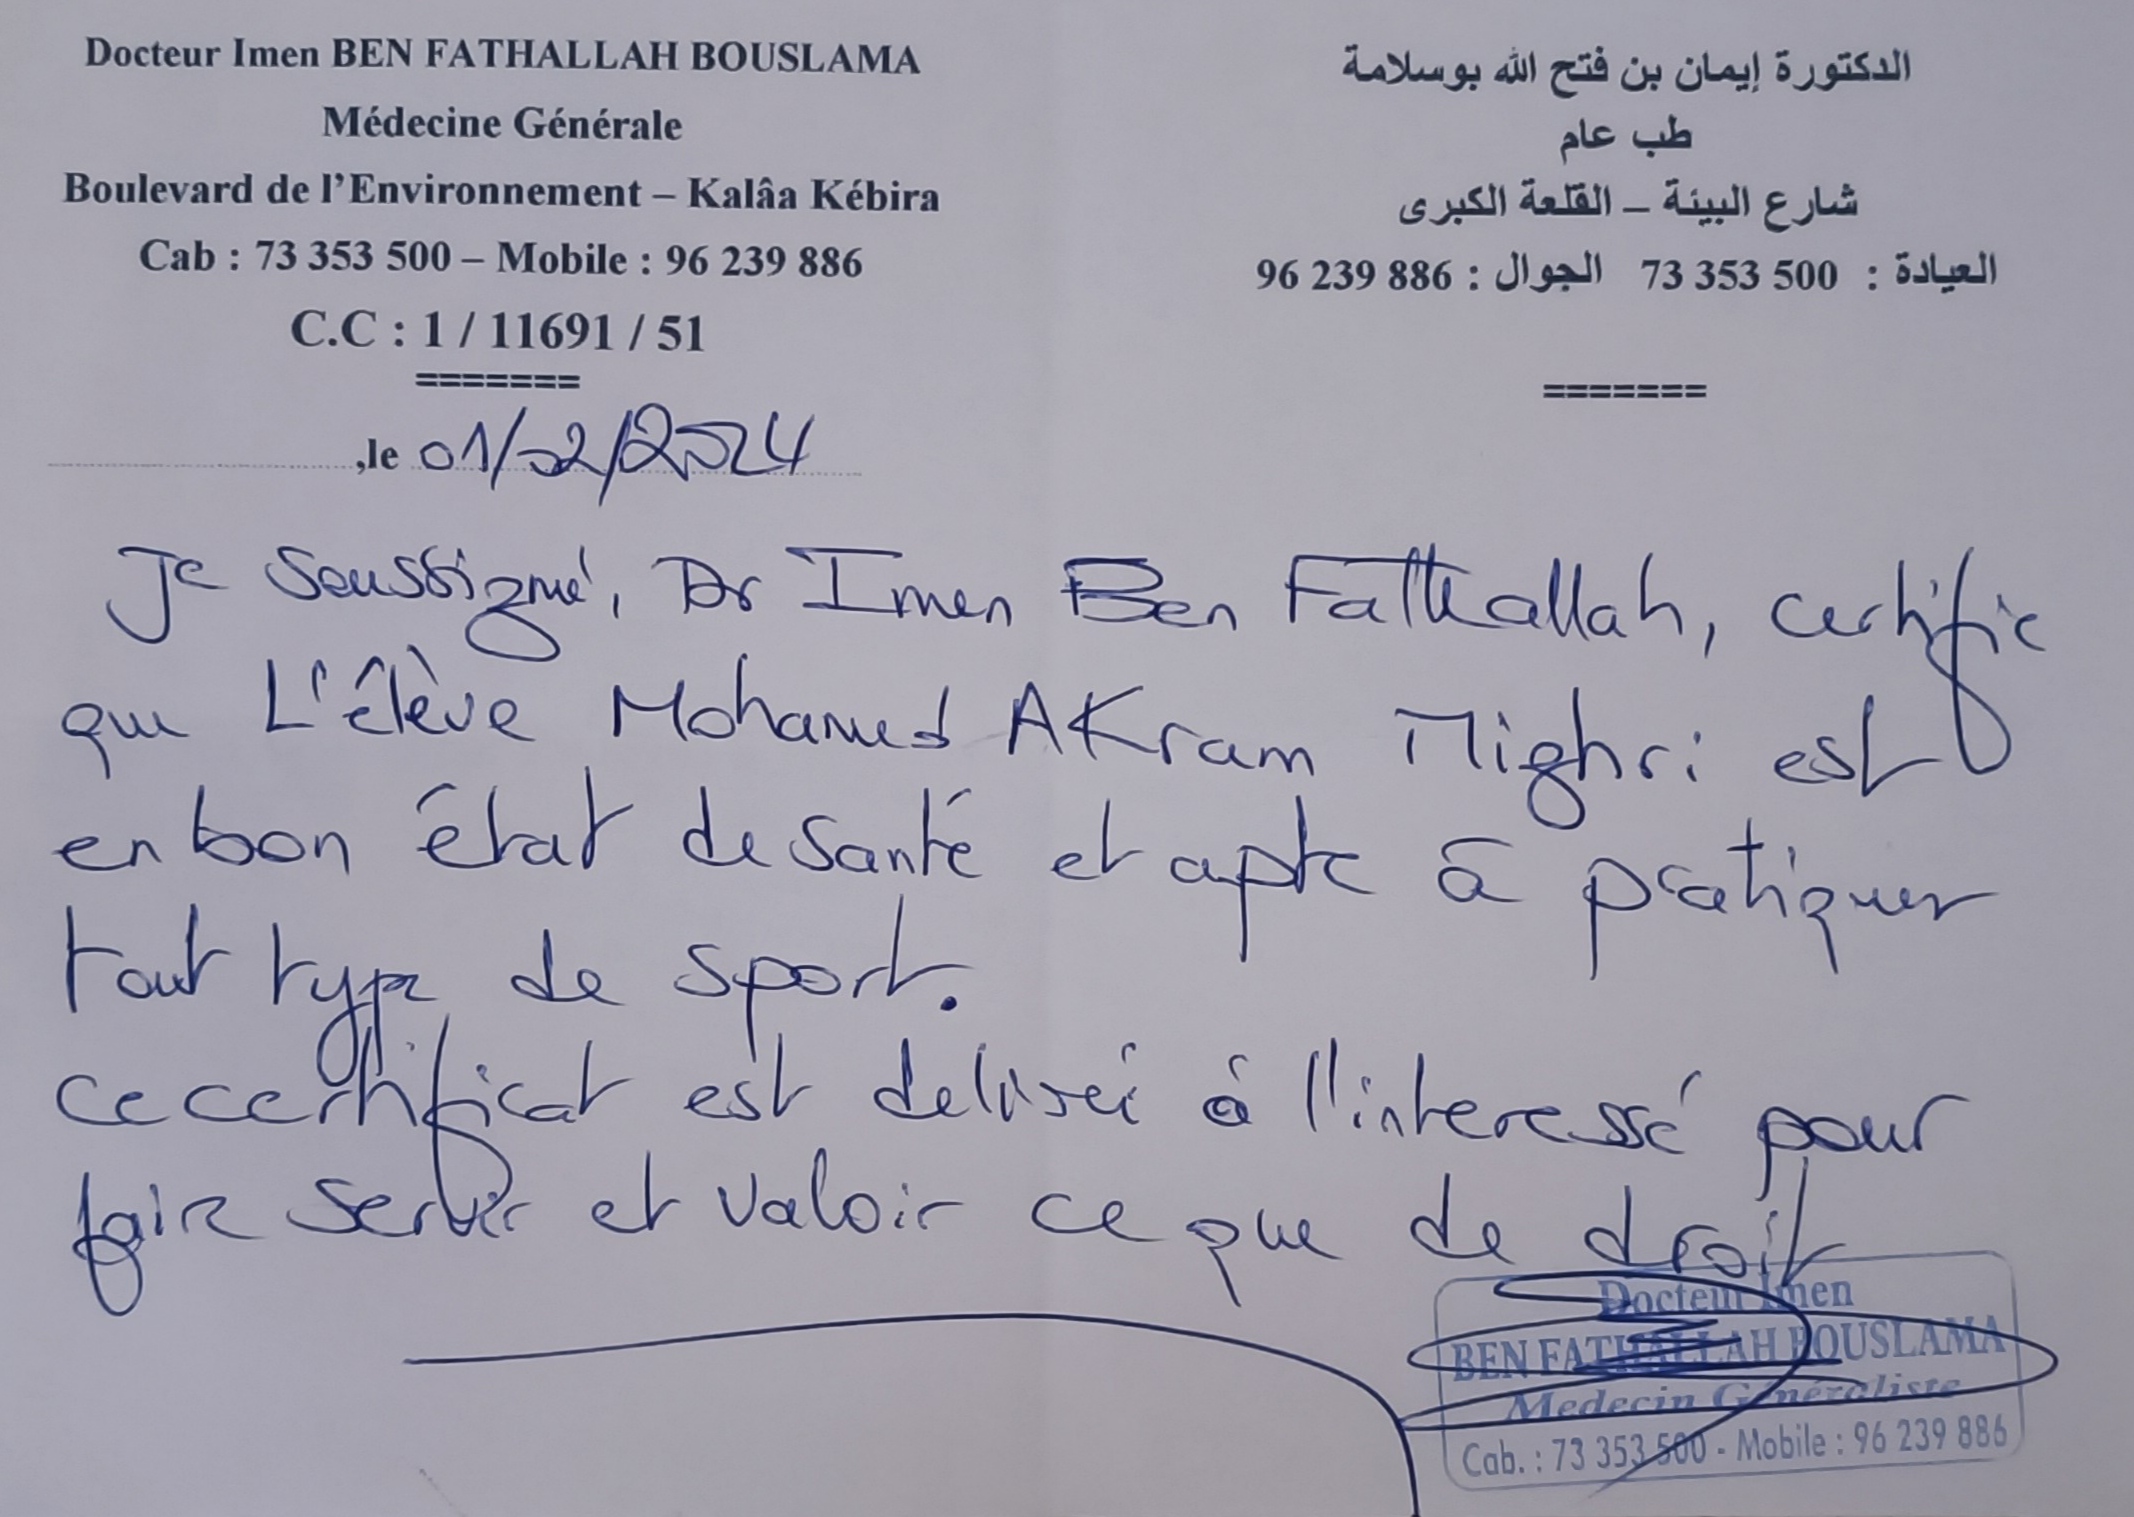 Docteur Imen BEN FATHALLAH BOUSLAMA
Médecine Générale
Boulevard de l'Environnement – Kalâa Kébira
Cab : 73 353 500 – Mobile : 96 239 886
C.C : 1 / 11691 / 51
=======
الدكتورة إيمان بن فتح الله بوسلامة
طب عام
شارع البيئة – القلعة الكبرى
العيادة : 73 353 500 الجوال : 96 239 886
=======
,le 01/02/2024
Je soussigné, Dr Imen Ben Fathallah, certifie
que L'élève Mohamed AKram Mighri est
en bon état de santé et apte à pratiquer
tout type de sport.
ce certificat est delivré à l'interessé pour
faire servir et valoir ce que de droit
Docteur Imen
BEN FATHALLAH BOUSLAMA
Medecin Généraliste
Cab. : 73 353 500 - Mobile : 96 239 886